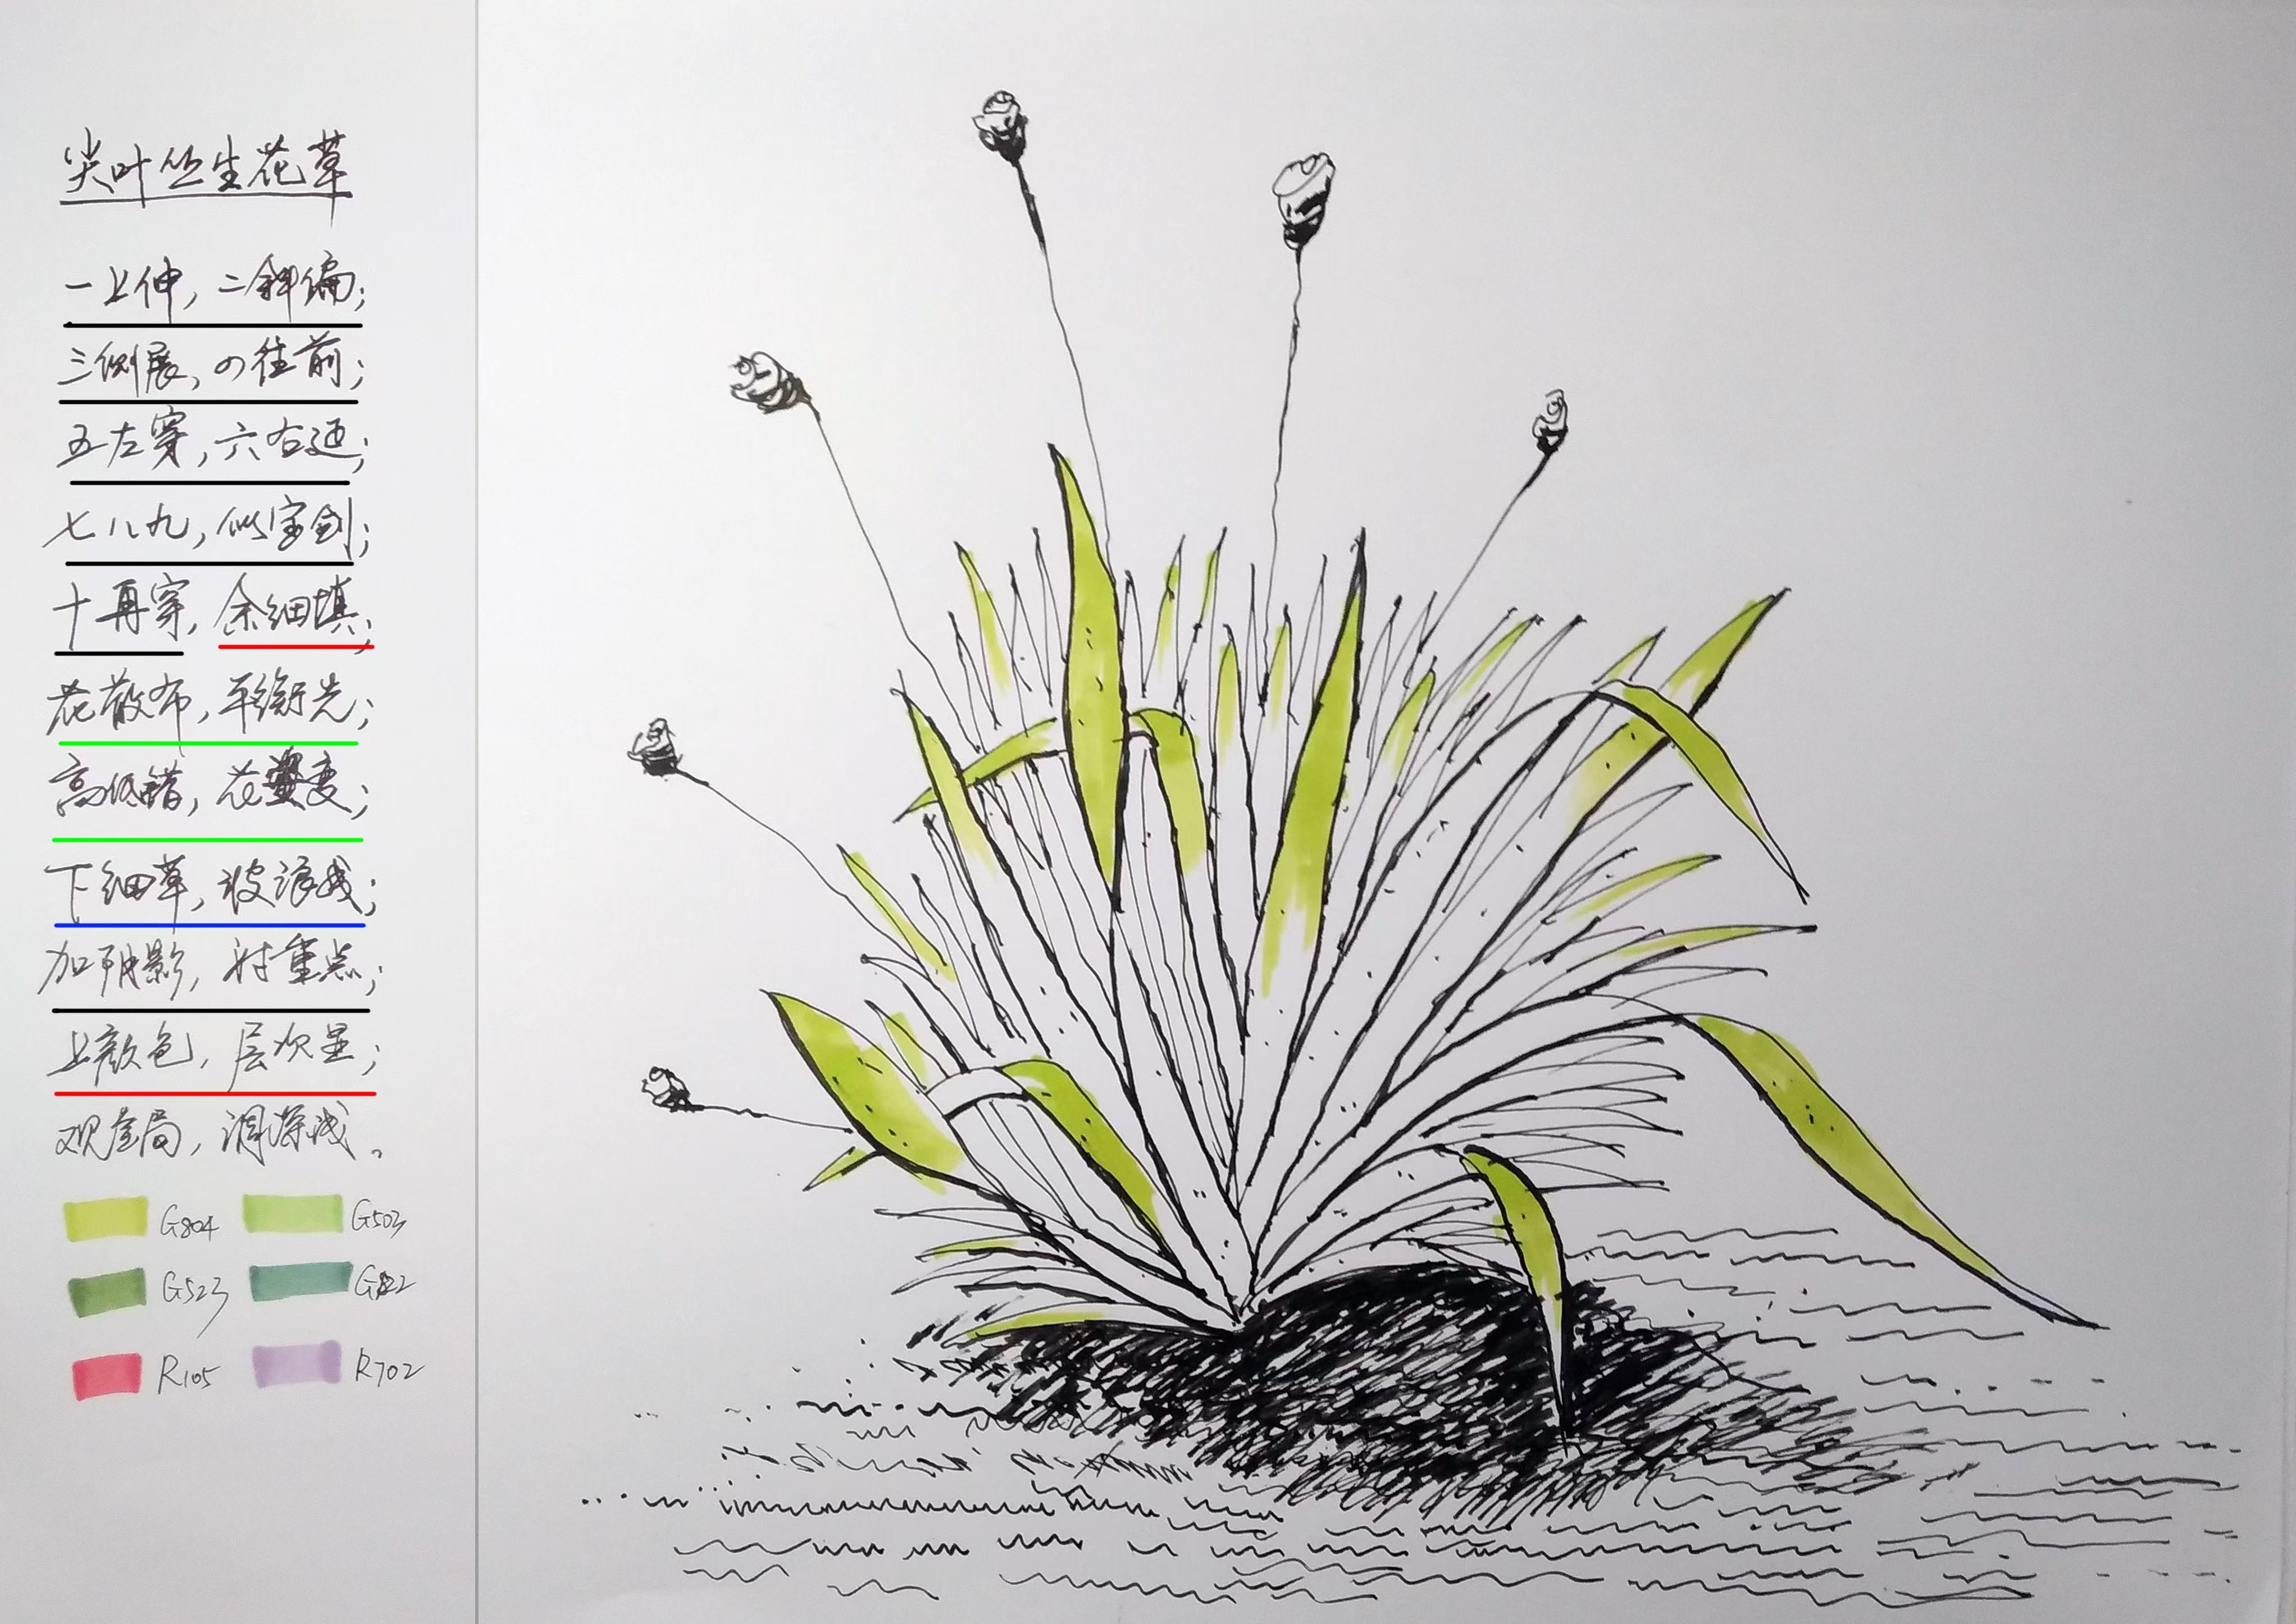 尖叶丛生花草
一上伸，二斜偏；
三侧展，四往前；
五左穿，六右迎；
七八九，似宝剑；
十再穿，余细填；
花散布，平衡先；
高低错，花变；
下细草，波浪线；
加阴影，衬重点；
上颜色，层次显；
观全局，调深浅。
G804 G503
G523
R105 R702